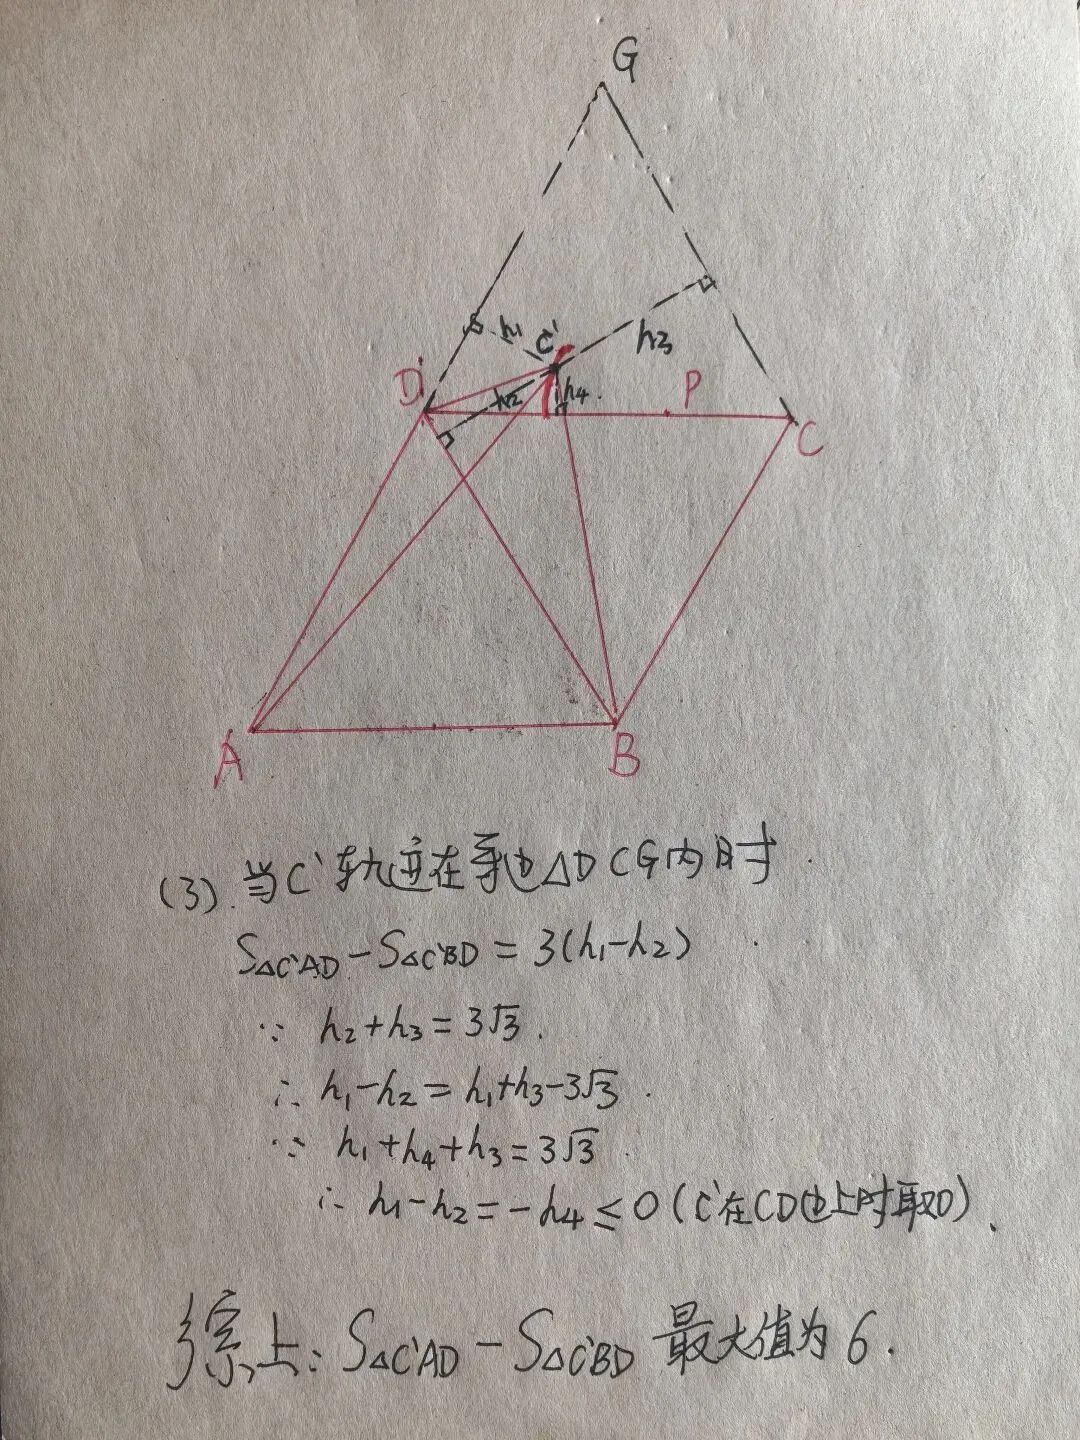 G
h₁
C'
h₃
D
h₂
h₄.
P
C
A
B
(3). 当C'轨迹在等边△DCG内时.
S△C'AD - S△C'BD = 3(h₁-h₂)
∵ h₂+h₃=3√3.
∴ h₁-h₂=h₁+h₃-3√3.
∵ h₁+h₄+h₃=3√3.
∴ h₁-h₂=-h₄≤0(C'在CD边上时取0).
综上: S△C'AD - S△C'BD 最大值为6.